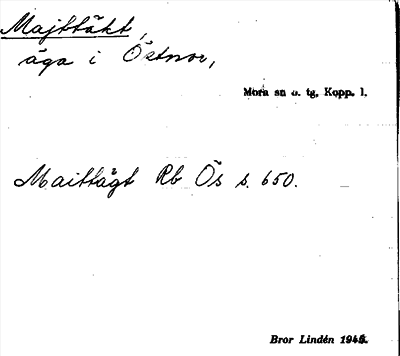 Majttäkt,
äga i Östnor,
Mora sn o. tg. Kopp. l.
Maittägt Rb Ös s. 650.
Bror Lindén 1945.